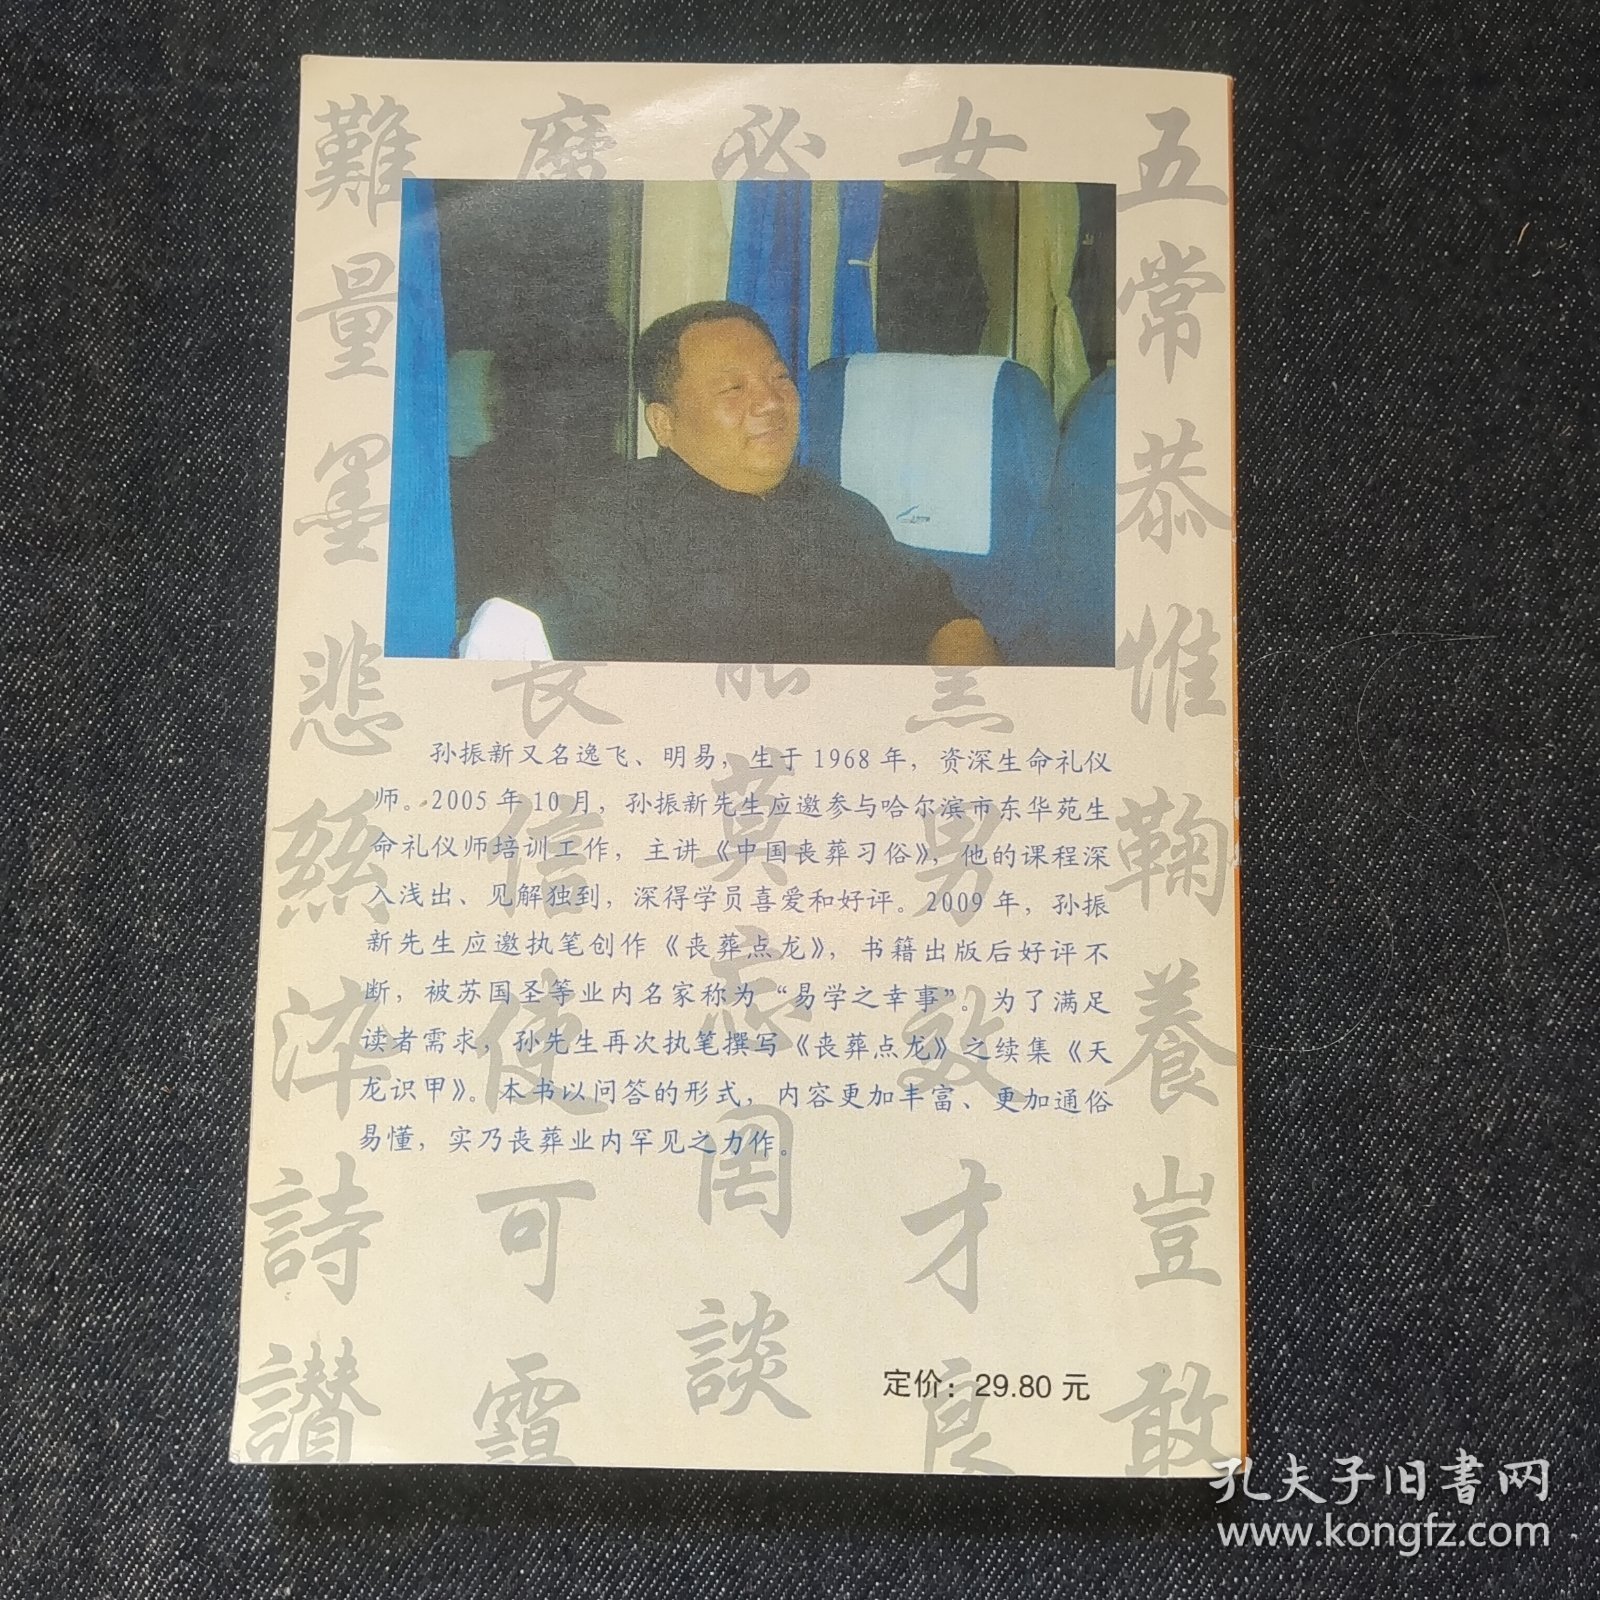 孙振新又名逸飞、明易，生于1968年，资深生命礼仪
师。2005年10月，孙振新先生应邀参与哈尔滨市东华苑生
命礼仪师培训工作，主讲《中国丧葬习俗》，他的课程深
入浅出、见解独到，深得学员喜爱和好评。2009年，孙振
新先生应邀执笔创作《丧葬点龙》，书籍出版后好评不
断，被苏国圣等业内名家称为“易学之幸事”。为了满足
读者需求，孙先生再次执笔撰写《丧葬点龙》之续集《天
龙识甲》。本书以问答的形式，内容更加丰富、更加通俗
易懂，实乃丧葬业内罕见之力作。
定价：29.80元
五常恭惟鞠養豈敢
女
男效才良
必
能莫忘罔談
靡
長信使可覆
難量墨悲絲
詩讃
孔夫子旧书网
www.kongfz.com